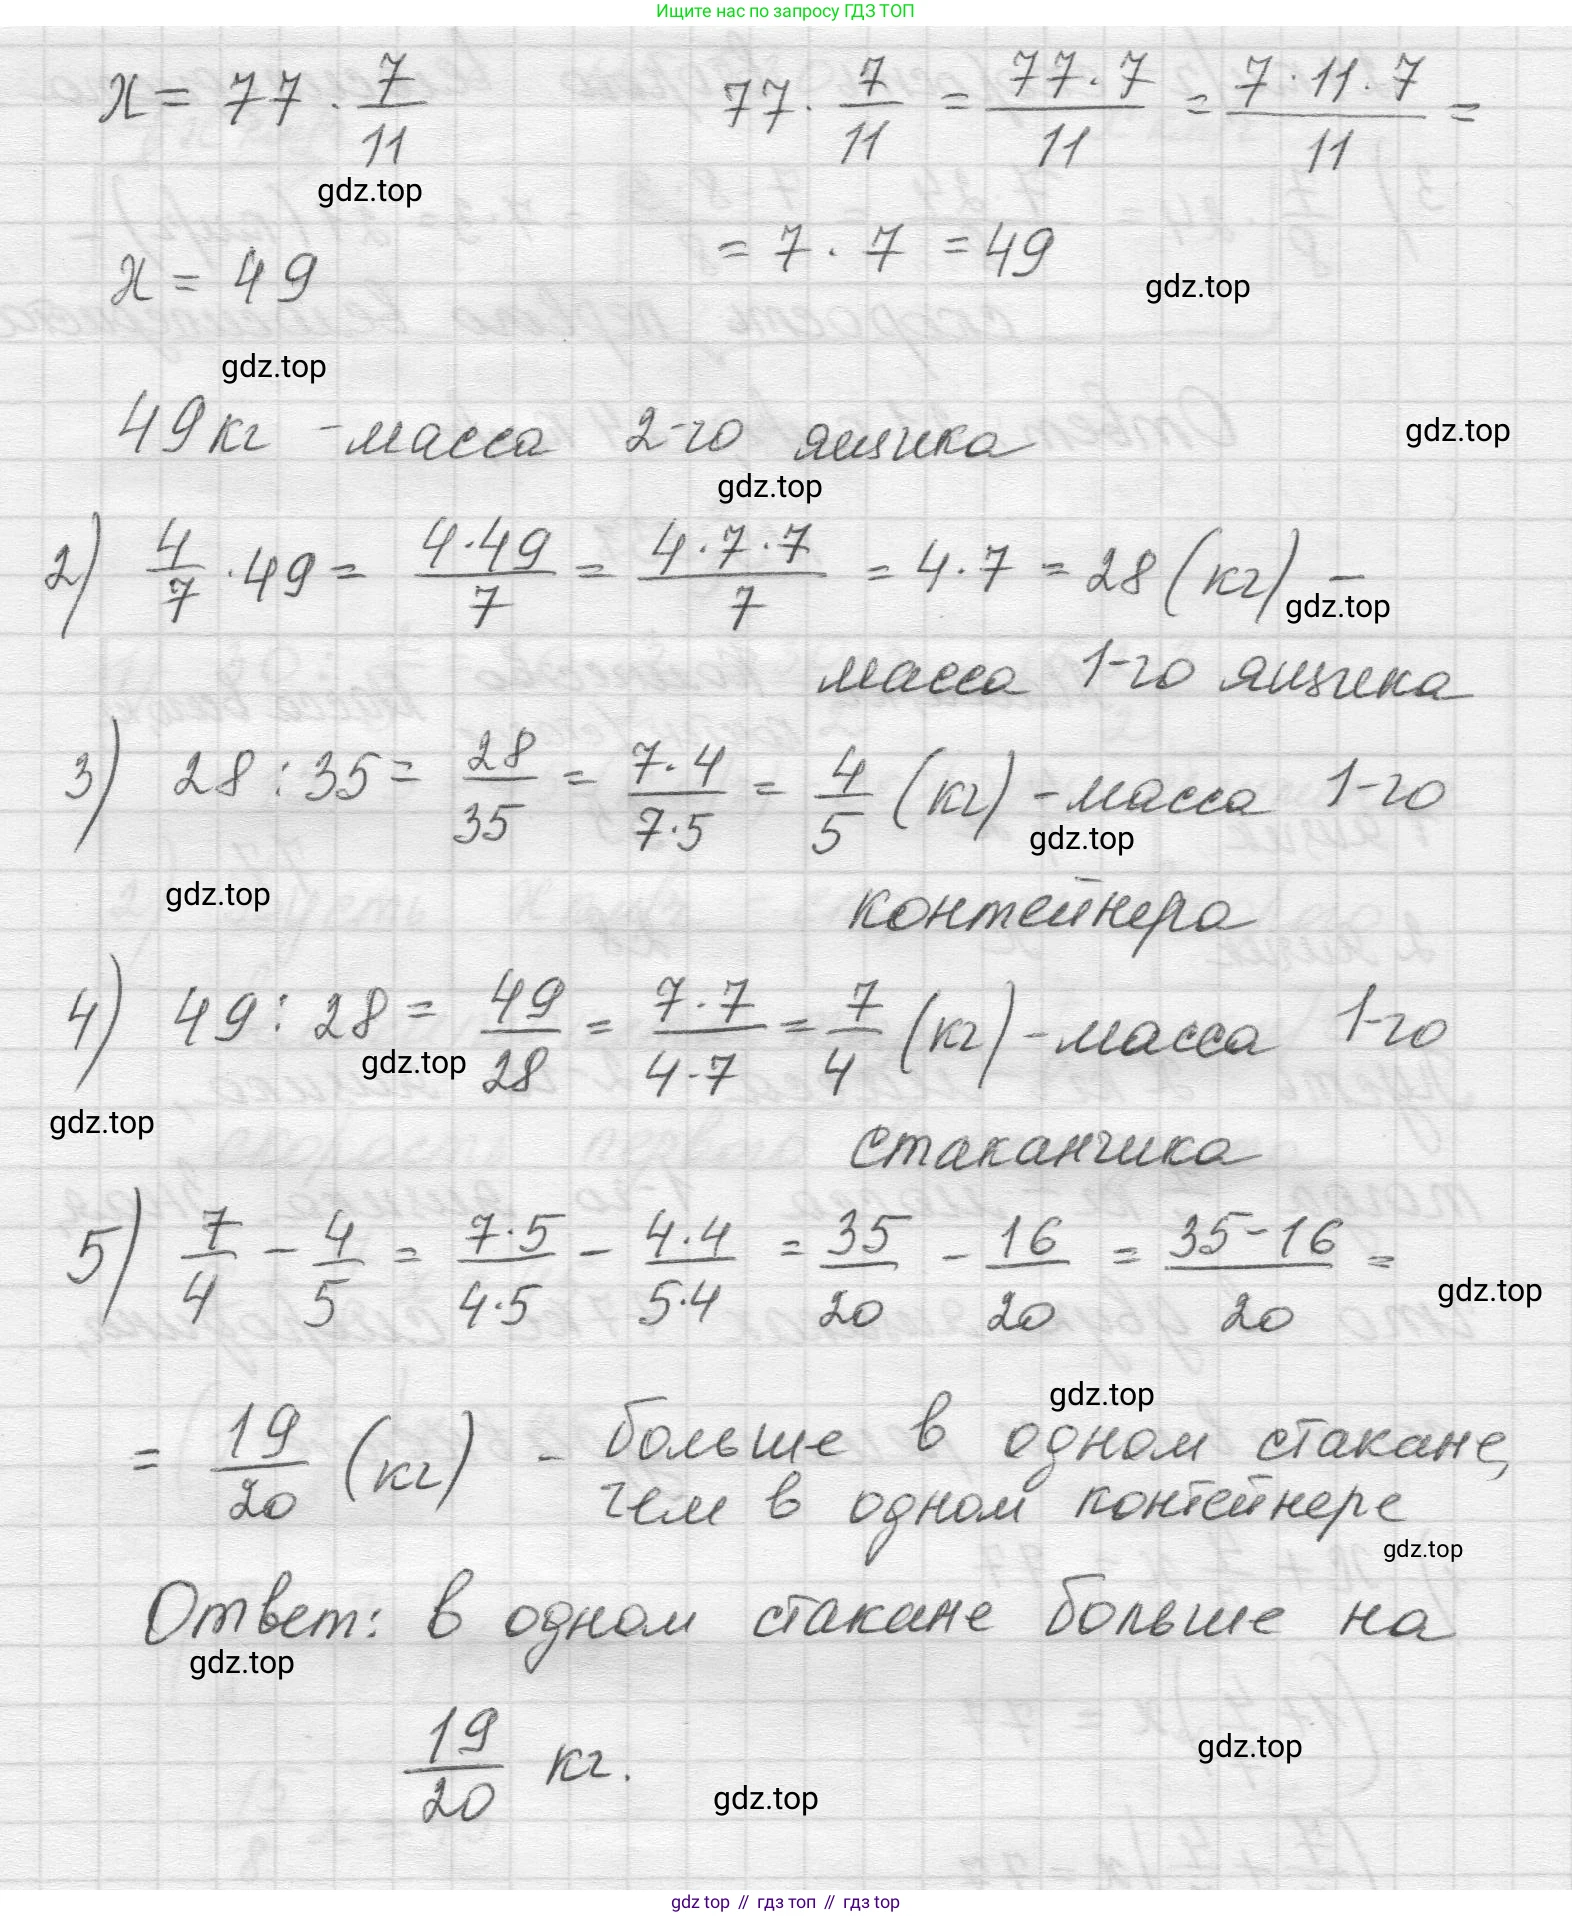 Ищите нас по запросу ГДЗ ТОП
x = 77 · 7/11    77 · 7/11 = 77 · 7/11 = 7 · 11 · 7/11 =
gdz.top
= 7 · 7 = 49
x = 49
gdz.top
gdz.top
49 кг - масса 2-го ящика
gdz.top
gdz.top
2) 4/7 · 49 = 4 · 49/7 = 4 · 7 · 7/7 = 4 · 7 = 28 (кг) –
gdz.top
масса 1-го ящика
3) 28 : 35 = 28/35 = 7 · 4/7 · 5 = 4/5 (кг) - масса 1-го
gdz.top
gdz.top
контейнера
4) 49 : 28 = 49/28 = 7 · 7/4 · 7 = 7/4 (кг) - масса 1-го
gdz.top
gdz.top
стаканчика
5) 7/4 – 4/5 = 7 · 5/4 · 5 – 4 · 4/5 · 4 = 35/20 – 16/20 = 35 – 16/20 =
gdz.top
gdz.top
= 19/20 (кг) - больше в одном стакане,
чем в одном контейнере
gdz.top
Ответ: в одном стакане больше на
gdz.top
19/20 кг.
gdz.top
gdz.top
gdz top // гдз топ // гдз top